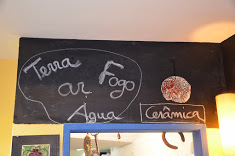 Terra
ar Fogo
Água
Cerâmica